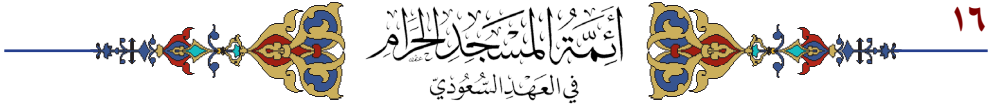 ١٦
أَئِمَّةُ المَسْجِدِ الحَرَامِ
في العَهْدِ السُّعُودِيّ